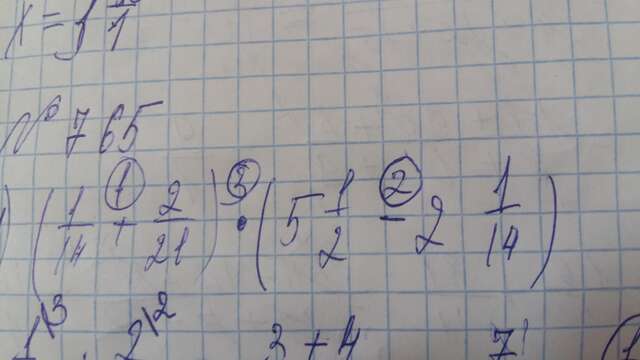 № 765
(1/14 + 2/21) · (5 1/2 - 2 1/14)
1\3 2\2 3+4 7